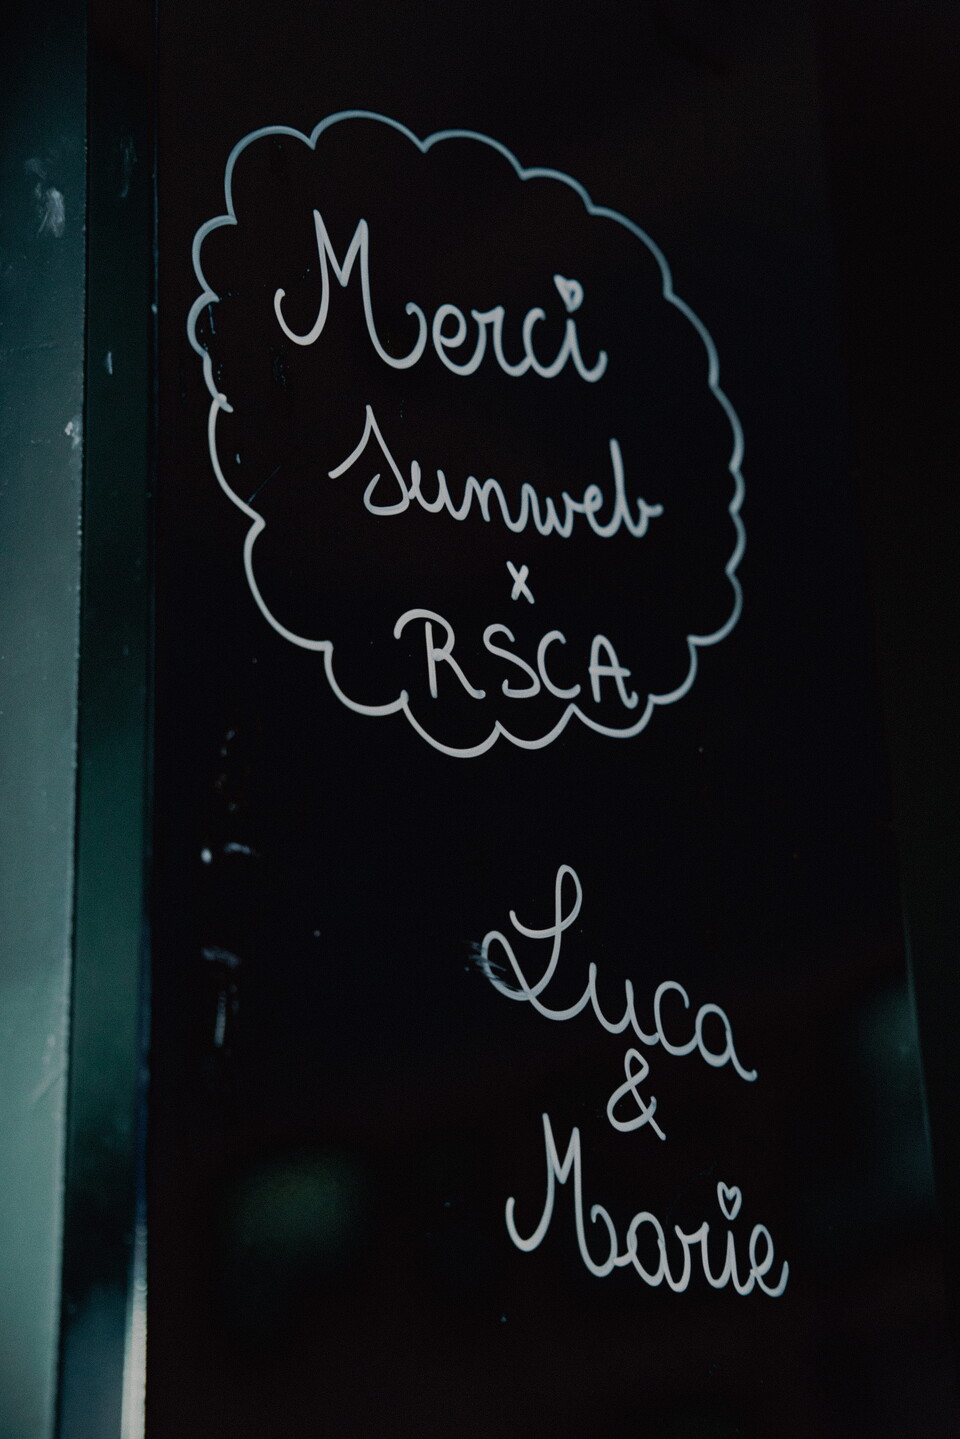 Merci
Sunweb
x
RSCA
Luca
&
Marie